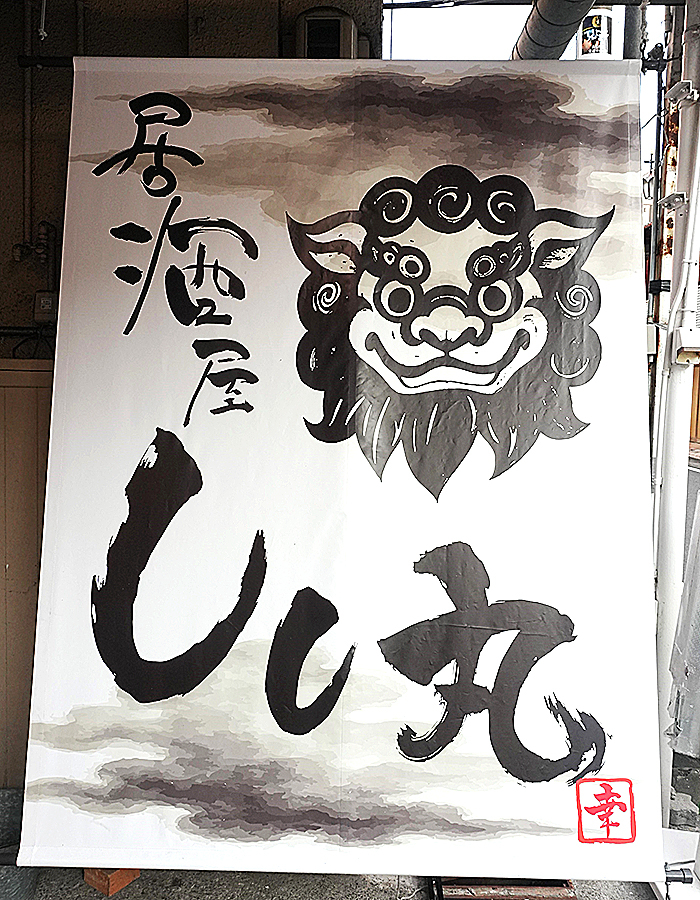 居酒屋
しし丸
幸